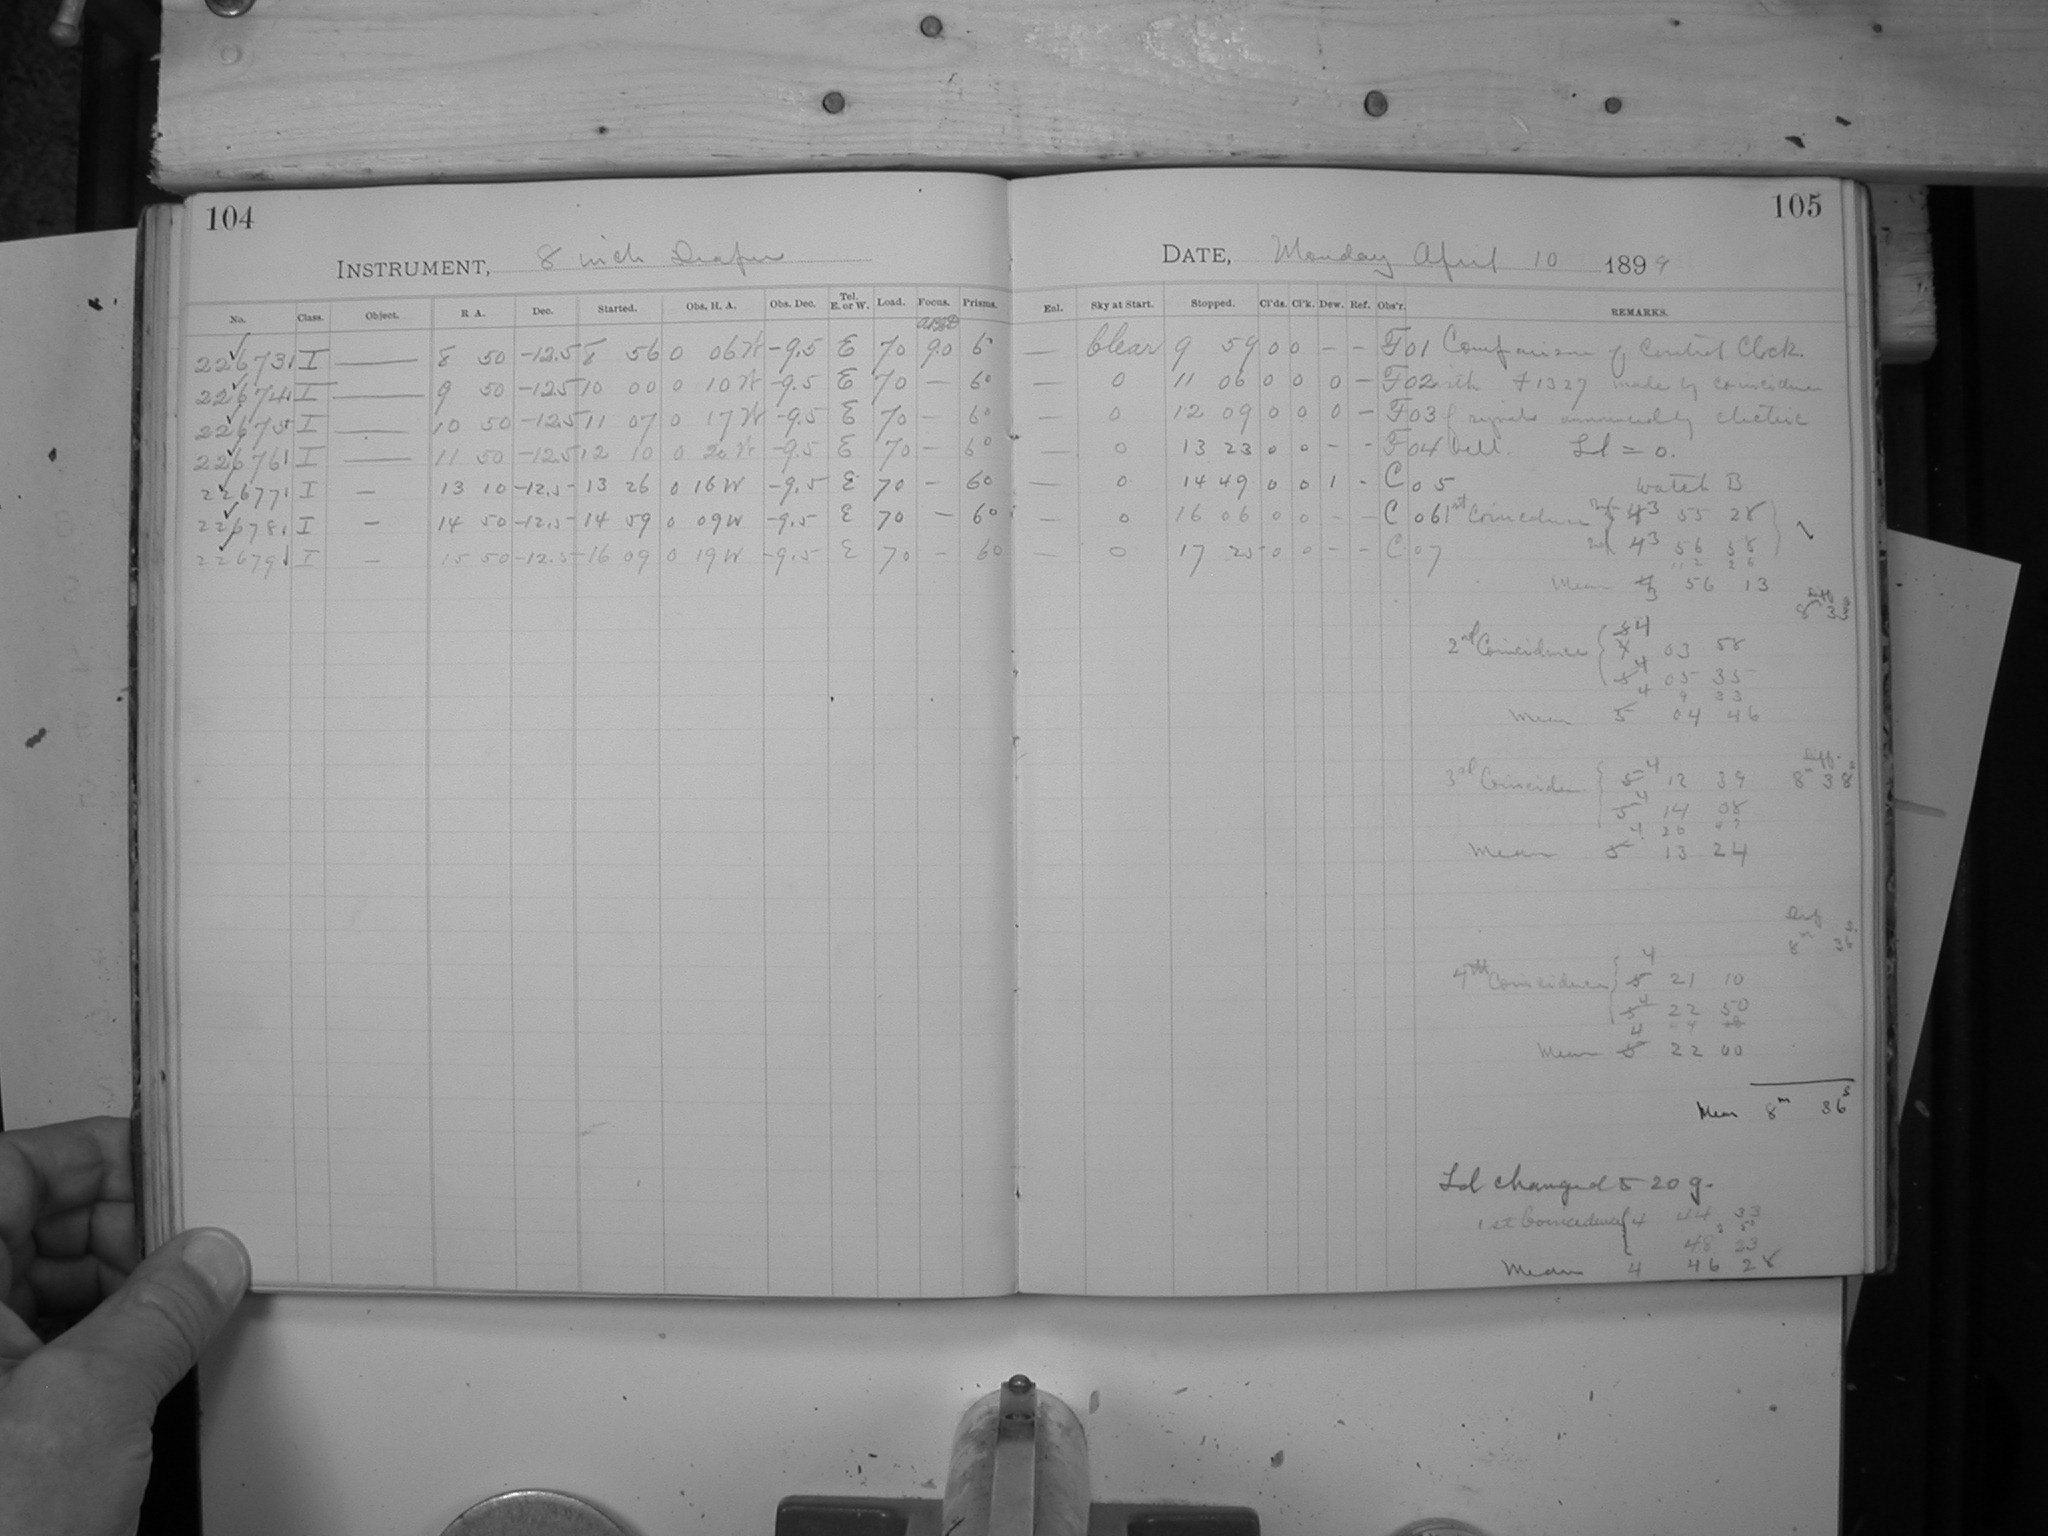 104
INSTRUMENT, 8 inch Draper
No. Class. Object. R A. Dec. Started. Obs. H. A. Obs. Dec. Tel. E. or W. Load. Focus. Prisms.
22673 I — 8 50 -12.5 8 56 0 06 W -9.5 E 70 9.0 6°
22674 I — 9 50 -12.5 10 00 0 10 W -9.5 E 70 — 6°
22675 I — 10 50 -12.5 11 07 0 17 W -9.5 E 70 — 6°
22676 I — 11 50 -12.5 12 10 0 20 W -9.5 E 70 — 6°
22677 I — 13 10 -12.5 13 26 0 16 W -9.5 E 70 — 60
22678 I — 14 50 -12.5 14 59 0 09 W -9.5 E 70 — 60
22679 I — 15 50 -12.5 16 09 0 19 W -9.5 E 70 — 60
105
DATE, Monday April 10 1899
Enl. Sky at Start. Stopped. Cl'ds. Cl'k. Dew. Ref. Obs'r. REMARKS.
— Clear 9 59 0 0 - - F 01 Comparison of Control Clock
— 0 11 06 0 0 0 - F 02 with F 1327 made by coincidence
— 0 12 09 0 0 0 - F 03 of signals announced by electric
— 0 13 23 0 0 - - F 04 bell. Ld = 0.
— 0 14 49 0 0 1 - C 05 Watch B
— 0 16 06 0 0 - - C 06 1st Coincidence 3 55 28
— 0 17 25 0 0 - - C 07 3 56 58
Mean 3 56 13
2nd Coincidence 4 03 58
4 05 35
9 33
Mean 4 04 46
3rd Coinciden 4 12 39 Diff. 8m 38s
4 14 08
Mean 4 13 24
Diff
8m 36s
4th Coincidence 4 21 10
4 22 50
Mean 4 22 00
Mean 8m 36s
Ld changed 5 20 g.
1st Coincidence 4 44 33
48 23
Mean 4 46 28